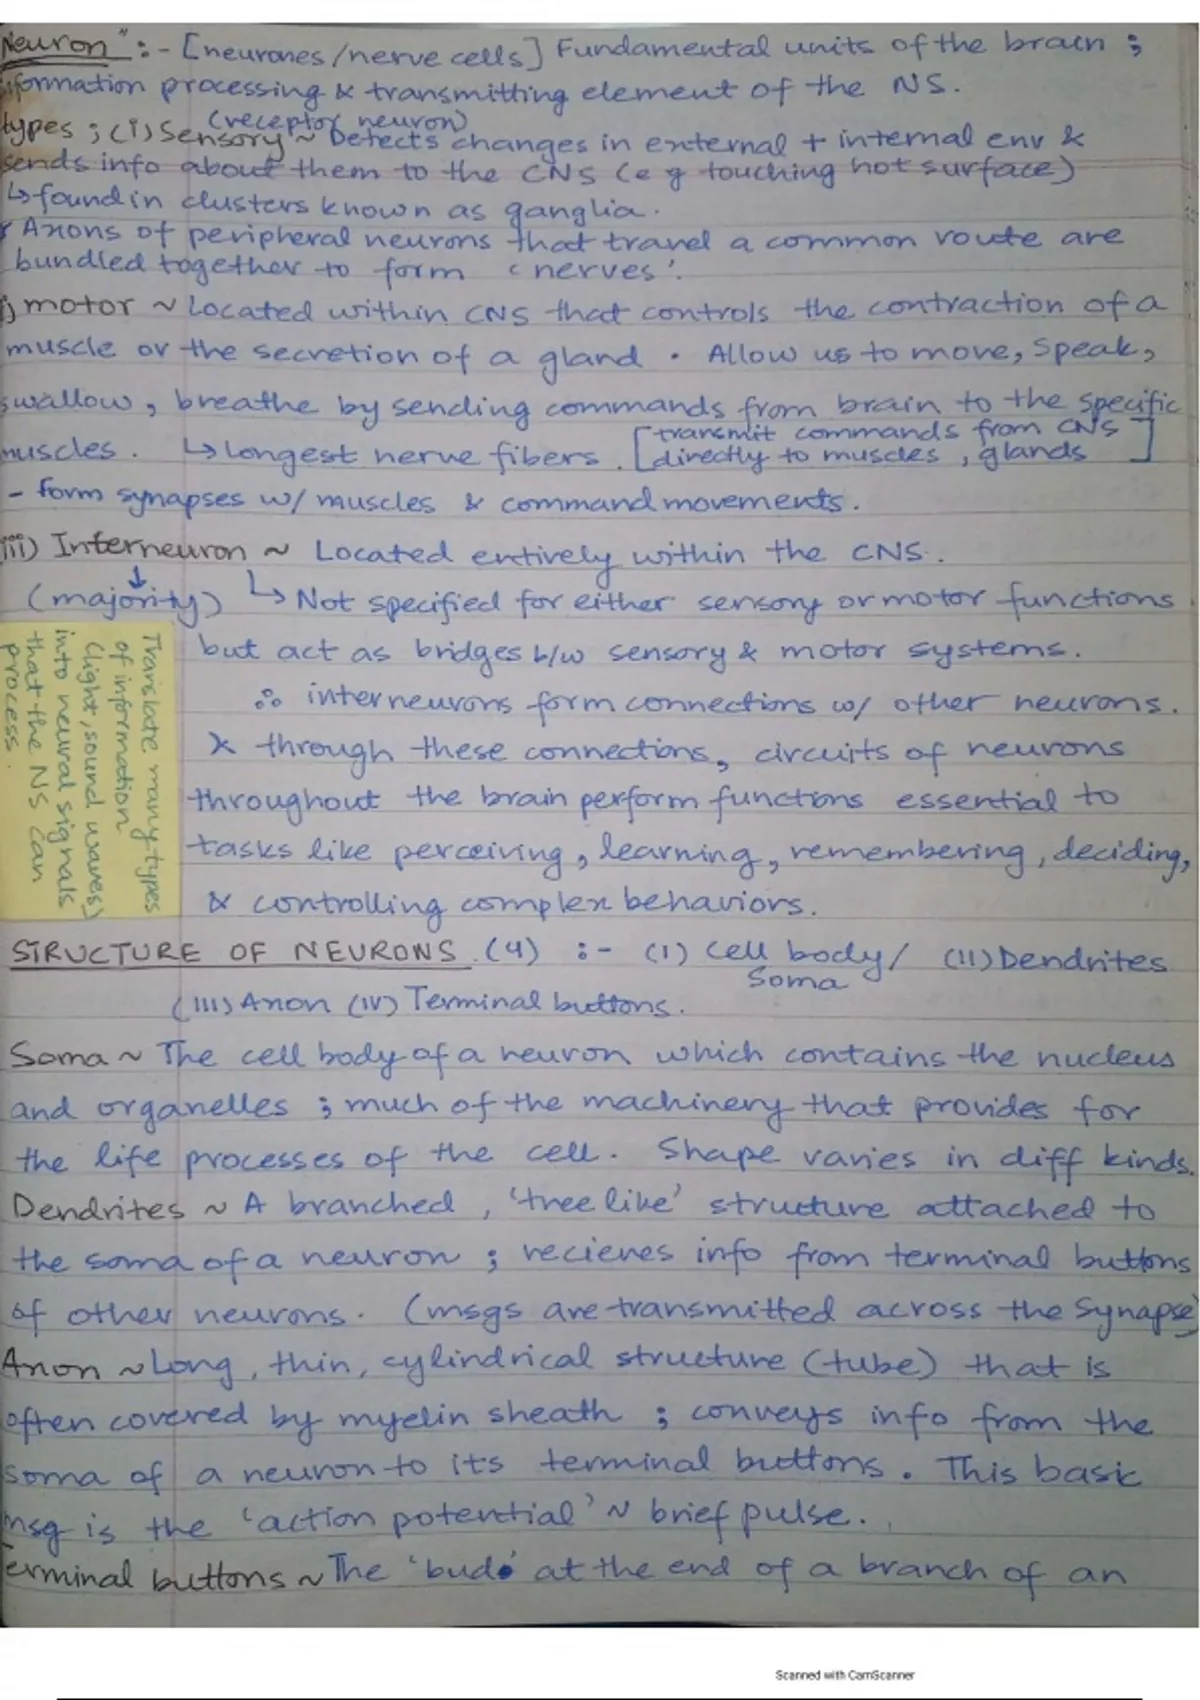 Neuron" :- [neurones/nerve cells] Fundamental units of the brain ;
formation processing & transmitting element of the NS.
(receptor neuron)
types ; (i) Sensory ~ Detects changes in external + internal env &
sends info about them to the CNS (eg touching hot surface)
↳ found in clusters known as ganglia.
* Axons of peripheral neurons that travel a common route are
bundled together to form 'nerves'.
motor ~ Located within CNS that controls the contraction of a
muscle or the secretion of a gland . Allow us to move, speak,
swallow, breathe by sending commands from brain to the specific
muscles. ↳ longest nerve fibers. [transmit commands from CNS
directly to muscles, glands]
- form synapses w/ muscles & command movements.
iii) Interneuron ~ Located entirely within the CNS.
(majority) ↳ Not specified for either sensory or motor functions
but act as bridges b/w sensory & motor systems.
∴ interneurons form connections w/ other neurons.
& through these connections, circuits of neurons
throughout the brain perform functions essential to
tasks like perceiving, learning, remembering, deciding,
& controlling complex behaviors.
Translate many types
of information
(light, sound waves)
into neural signals
that the NS can
process.
STRUCTURE OF NEURONS (4) :- (I) Cell body/ (II) Dendrites
Soma
(III) Axon (IV) Terminal buttons.
Soma ~ The cell body of a neuron which contains the nucleus
and organelles ; much of the machinery that provides for
the life processes of the cell. Shape varies in diff kinds.
Dendrites ~ A branched, 'tree like' structure attached to
the soma of a neuron ; recieves info from terminal buttons
of other neurons. (msgs are transmitted across the synapse)
Axon ~ Long, thin, cylindrical structure (tube) that is
often covered by myelin sheath ; conveys info from the
soma of a neuron to its terminal buttons. This basic
msg is the 'action potential' ~ brief pulse.
Terminal buttons ~ The 'bud' at the end of a branch of an
Scanned with CamScanner